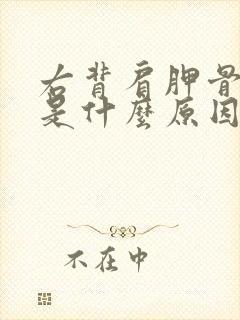 右背肩胛骨
是什麼原因
不在中